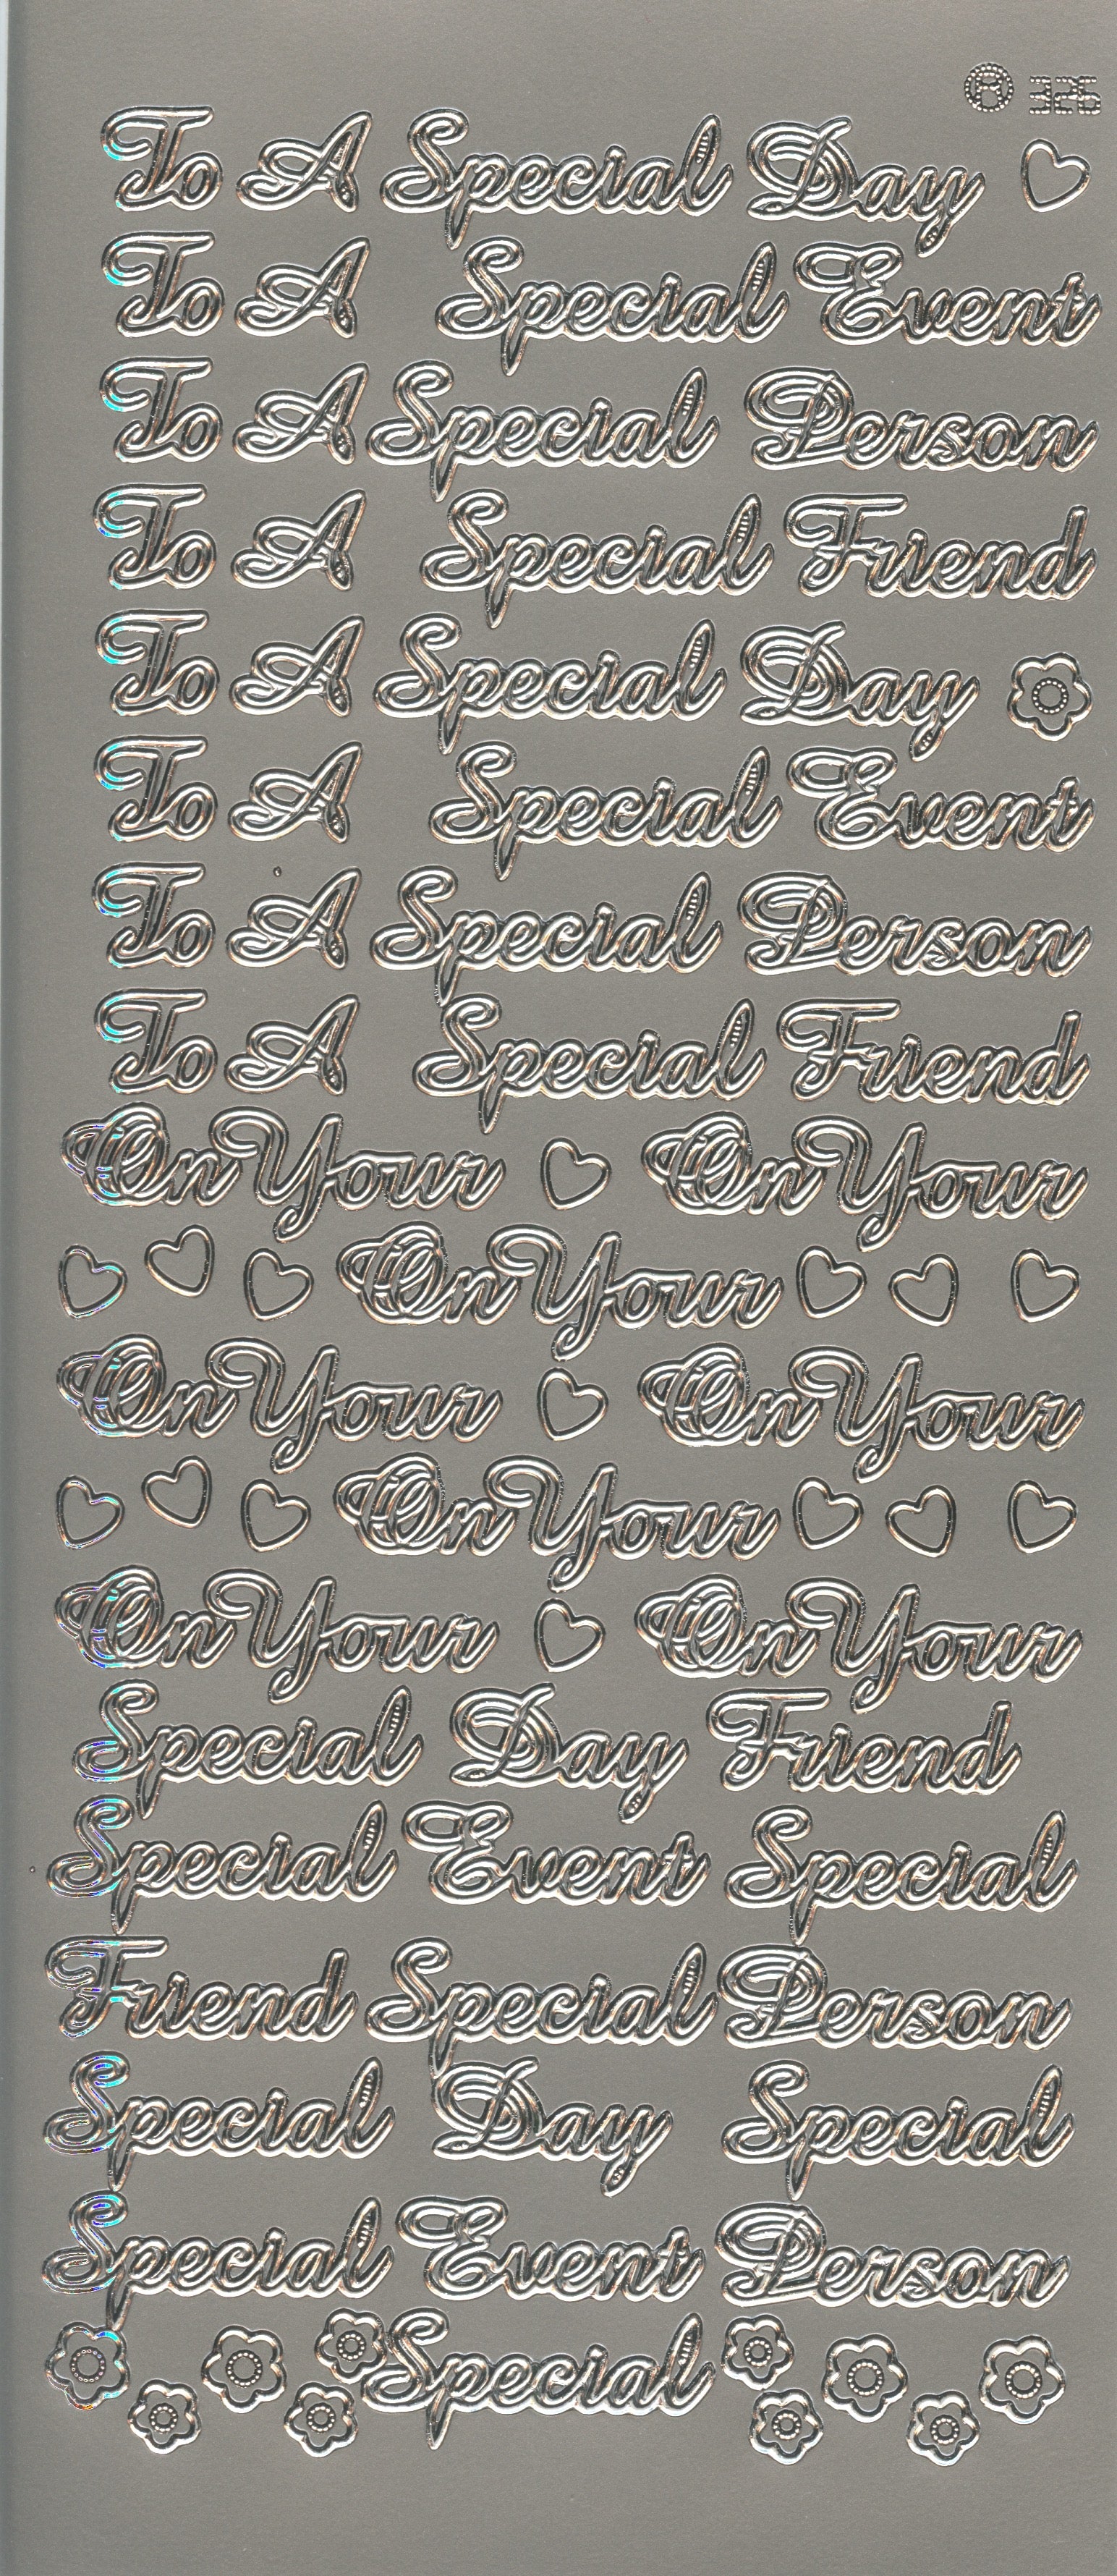 ® 326
To A Special Day
To A Special Event
To A Special Person
To A Special Friend
To A Special Day
To A Special Event
To A Special Person
To A Special Friend
On Your On Your
On Your
On Your On Your
On Your
On Your On Your
Special Day Friend
Special Event Special
Friend Special Person
Special Day Special
Special Event Person
Special